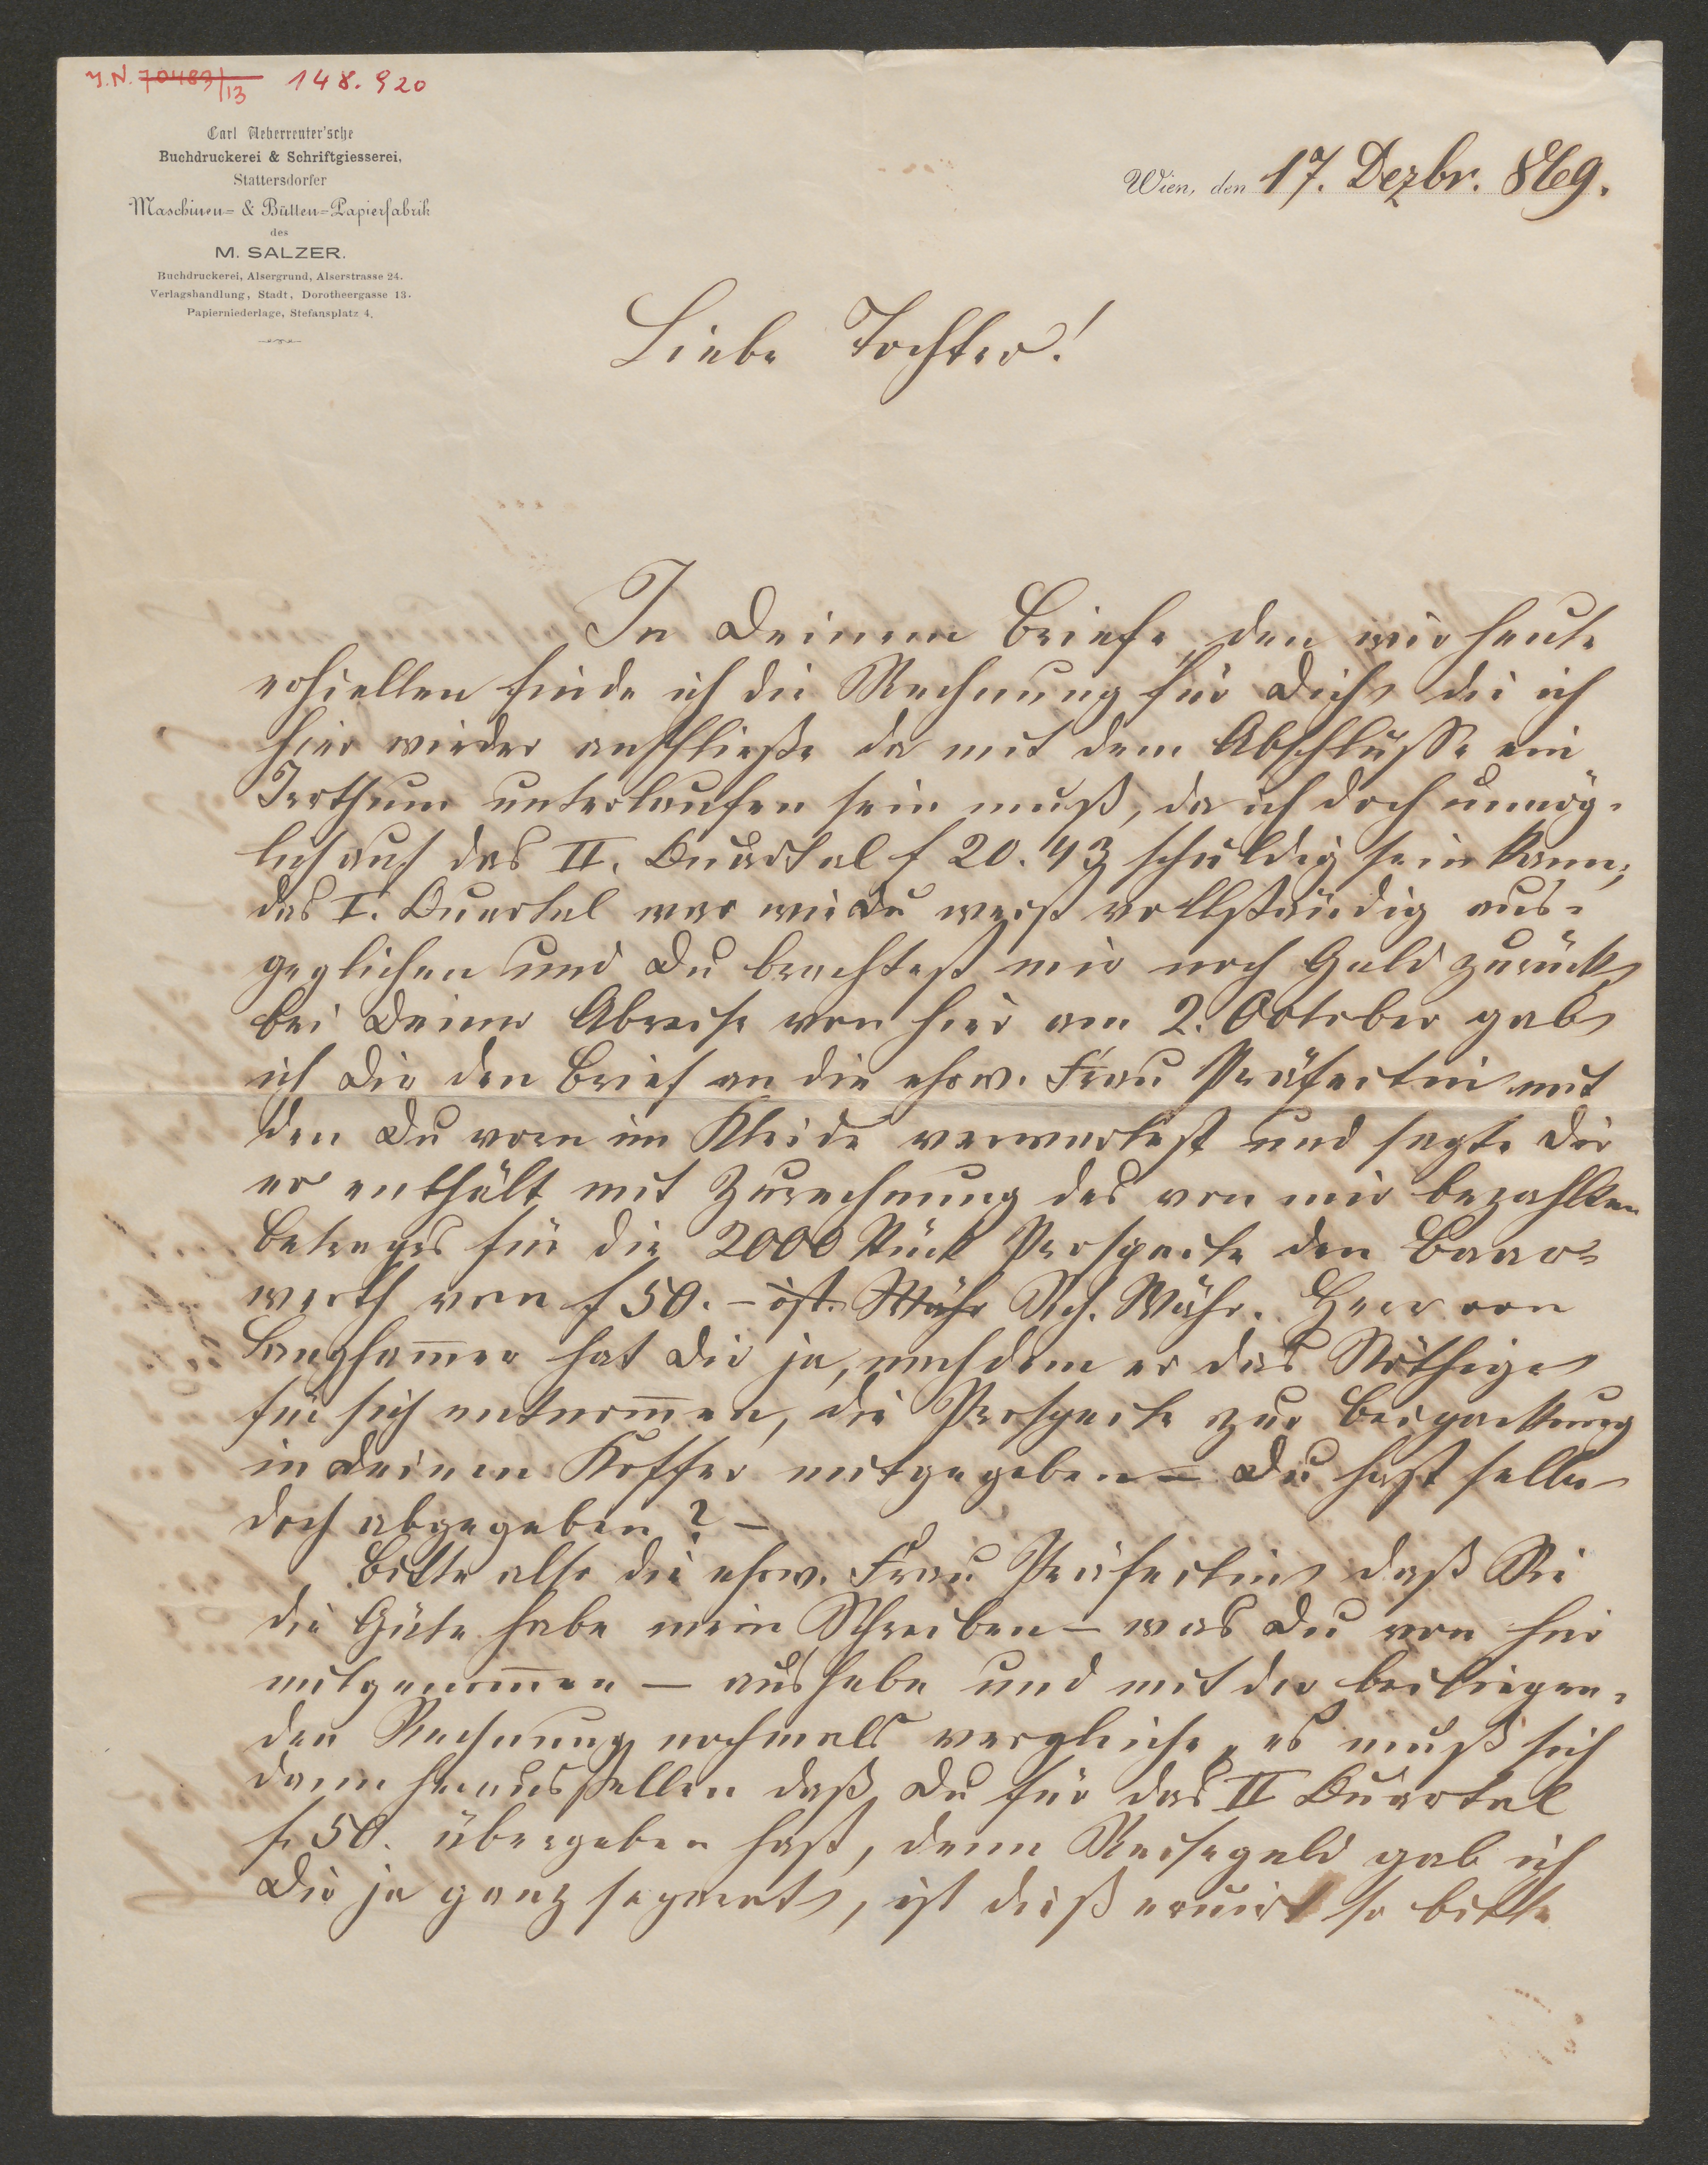 J.N. 70483/13 148.920
Carl Ueberreuter'sche
Buchdruckerei & Schriftgiesserei,
Stattersdorfer
Maschinen- & Bütten-Papierfabrik
des
M. SALZER.
Buchdruckerei, Alsergrund, Alserstrasse 24.
Verlagshandlung, Stadt, Dorotheergasse 13.
Papierniederlage, Stefansplatz 4.
Wien, den 17. Dezbr. 869.
Liebe Tochter!
In Deinem Briefe, den wir heute
erhielten finde ich die Rechnung für Dich die ich
hier wieder anschließe da mit dem Abschlusse ein
Irrthum unterlaufen sein muß, da ich doch unmög-
lich auf das II. Quartal f 20.43 schuldig sein kann;
das I. Quartal war wie Du weist vollständig aus-
geglichen und Du brachtest mir noch Geld zurück,
bei Deiner Abreise von hier am 2. October gab
ich Dir den Brief an die ehrw. Frau Präfectin mit
den Du vorn im Kleide verwartest und sagte Dir
er enthält mit Zurechnung des von mir bezahlten
Betrages für die 2000 Stück Prospecte den Baar-
werth von f 50.– öst. Währ Rh. Währ. Herr von
Langhammer hat Dir ja, nachdem er das Nöthige
für sich entnommen, die Prospecte zur Beipackung
in Deinen Koffer mitgegeben – Du hast selbe
doch abgegeben? –
Bitte also die ehrw. Frau Präfectin daß Sie
die Güte habe mein Schreiben – was Du von hier
mitgenommen – aushebe und mit der beiliegen-
den Rechnung nochmals vergleiche, es muß sich
dann herausstellen daß Du für das II Quartal
f. 50. übergeben hast, denn Reisegeld gab ich
Dir ja ganz separat, ist dieß eruirt so bitte